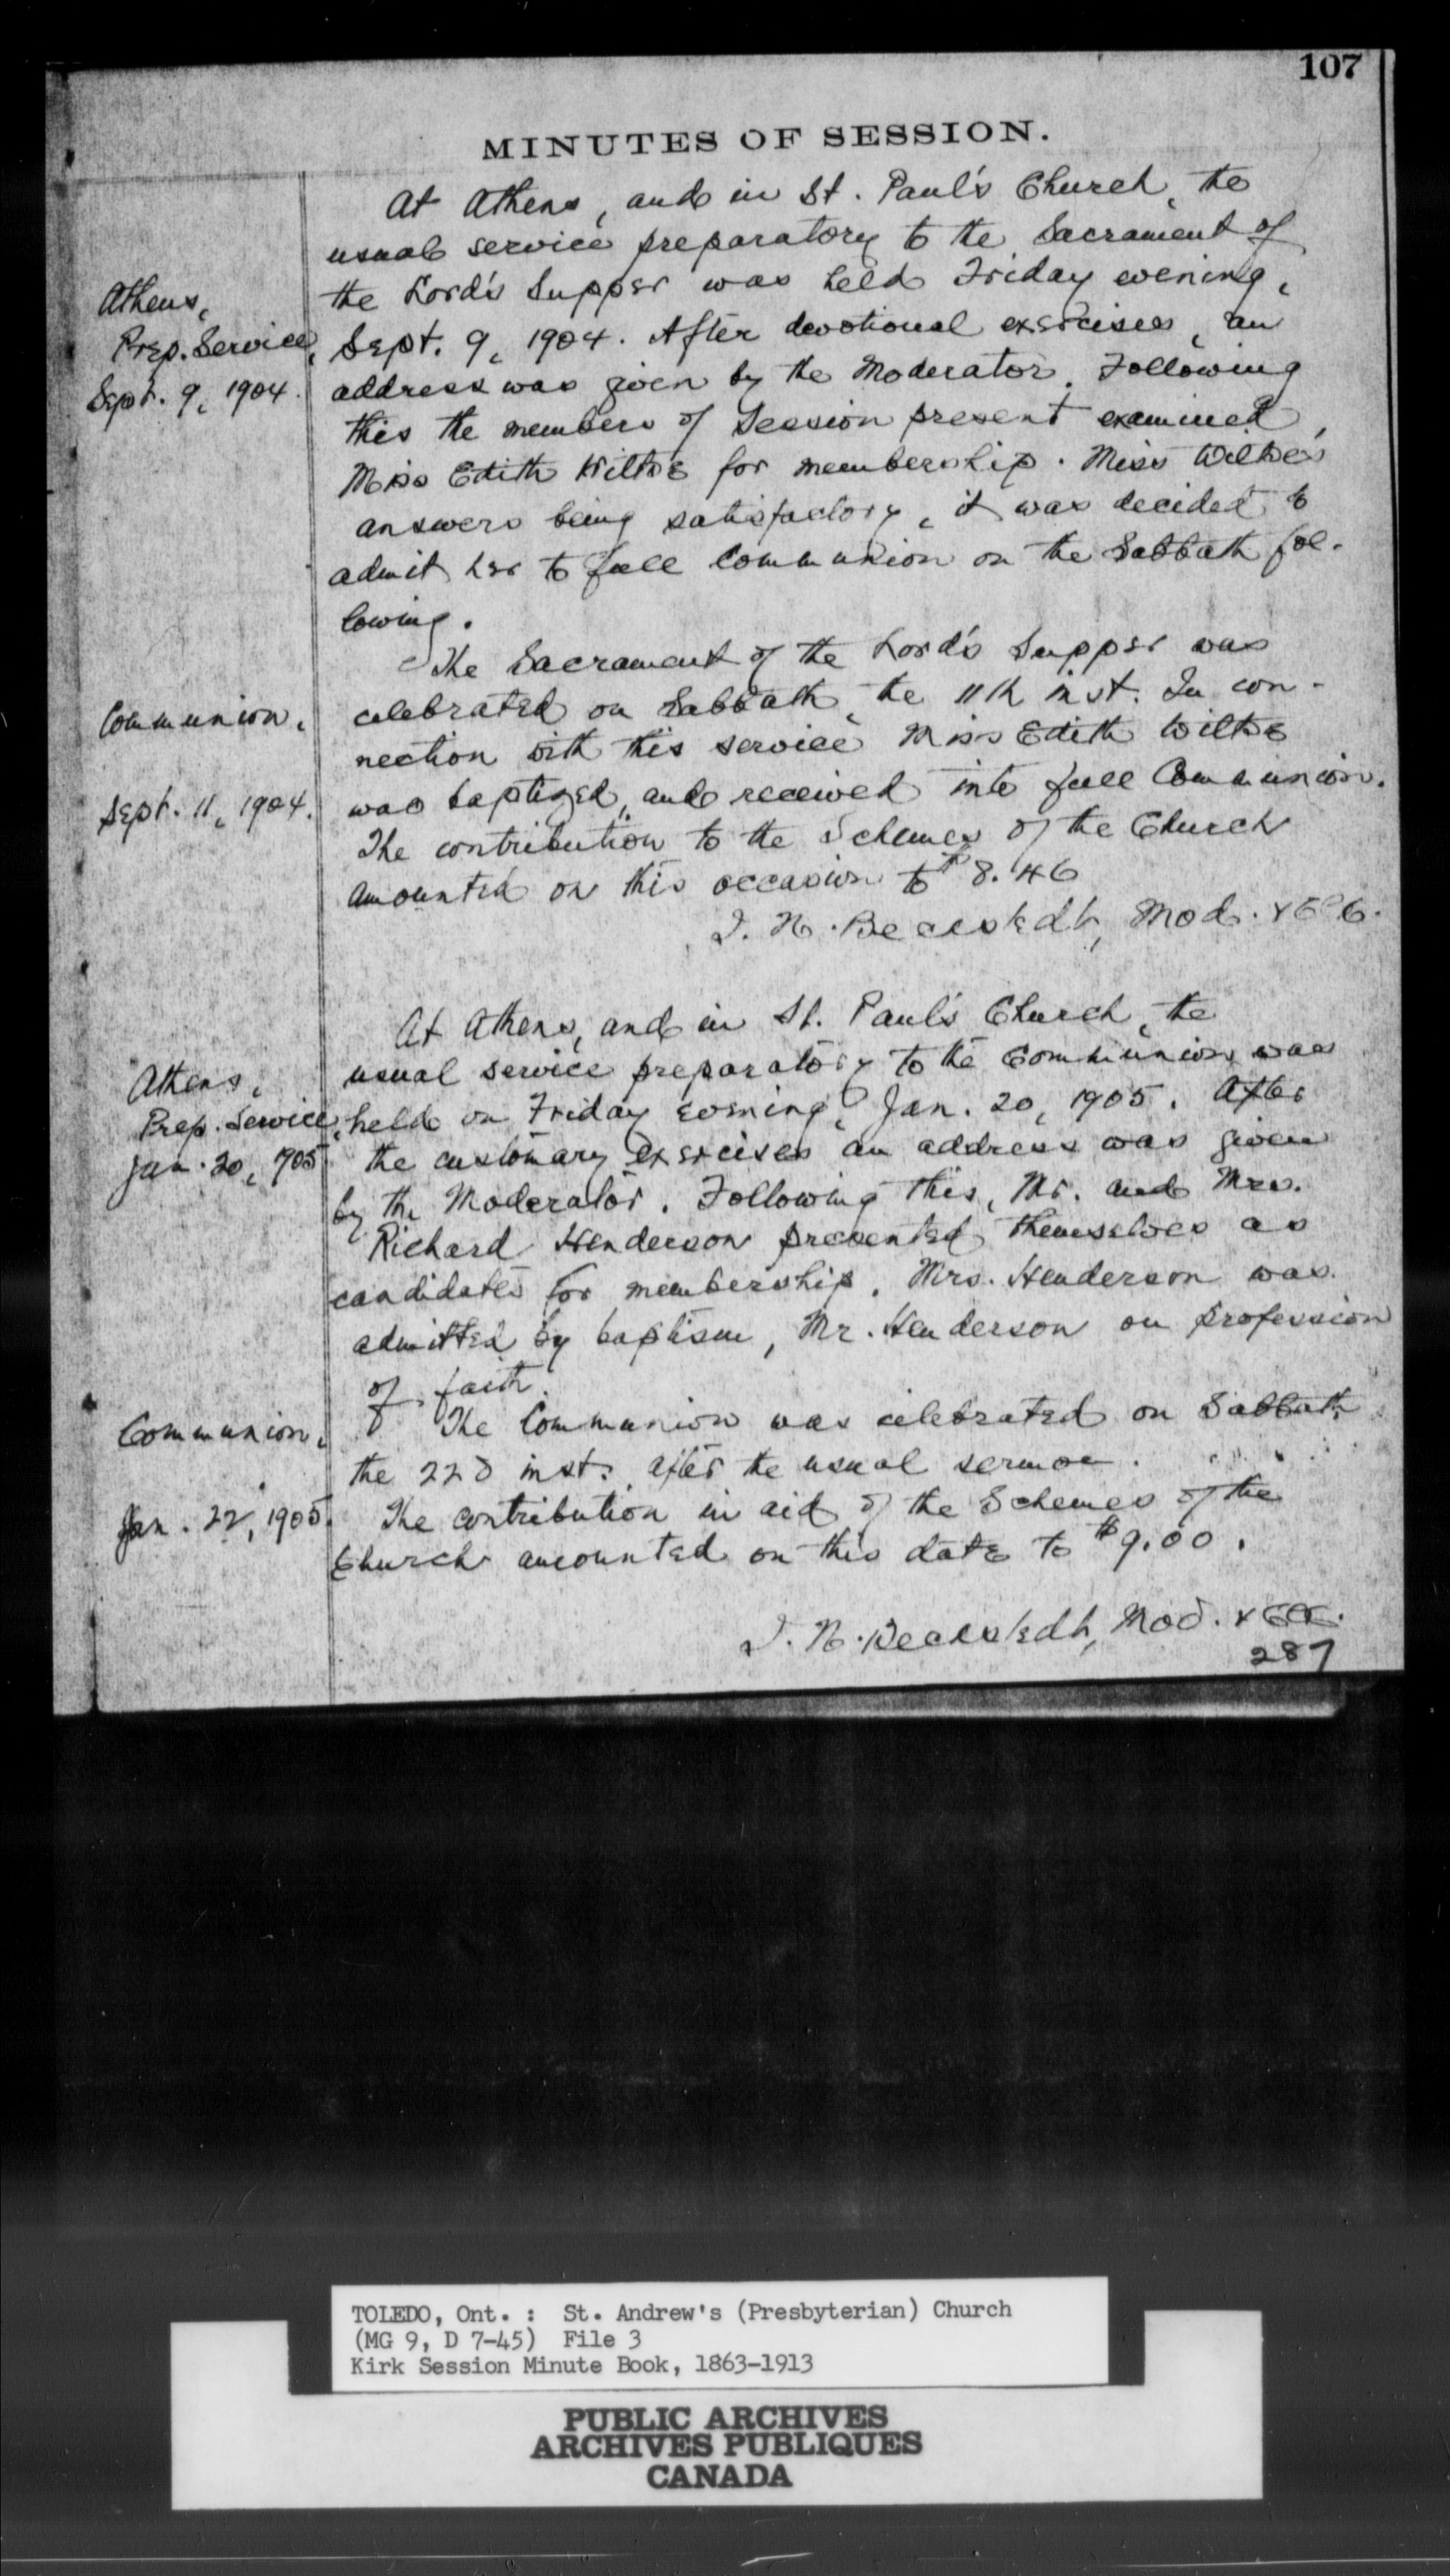 107
MINUTES OF SESSION.
At Athens, and in St. Paul's Church, the
usual service preparatory to the Sacrament of
the Lord's Supper was held Friday evening,
Athens,
Prep. Service,
Sept. 9, 1904.
Sept. 9, 1904. After devotional exercises, an
address was given by the Moderator. Following
this the members of Session present examined
Miss Edith Wiltse for membership. Miss Wiltse's
answers being satisfactory, it was decided to
admit her to full Communion on the Sabbath fol-
lowing.
The Sacrament of the Lord's Supper was
Communion,
celebrated on Sabbath, the 11th inst. In con-
nection with this service Miss Edith Wiltse
Sept. 11, 1904.
was baptized, and received into full Communion.
The contribution to the Schemes of the Church
amounted on this occasion to $8.46
I. N. Beckstedt, Mod. &
At Athens, and in St. Paul's Church, the
usual service preparatory to the Communion was
Athens,
Prep. Service,
Jan. 20, 1905
held on Friday evening, Jan. 20, 1905. After
the customary exercises an address was given
by the Moderator. Following this, Mr. and Mrs.
Richard Henderson presented themselves as
candidates for membership. Mrs. Henderson was
admitted by baptism, Mr. Henderson on profession
of faith.
Communion,
The Communion was celebrated on Sabbath
the 22d inst. after the usual sermon.
Jan. 22, 1905.
The contribution in aid of the Schemes of the
Church amounted on this date to $9.00.
I. N. Beckstedt, Mod. &
287
TOLEDO, Ont. : St. Andrew's (Presbyterian) Church
(MG 9, D 7-45) File 3
Kirk Session Minute Book, 1863-1913
PUBLIC ARCHIVES
ARCHIVES PUBLIQUES
CANADA